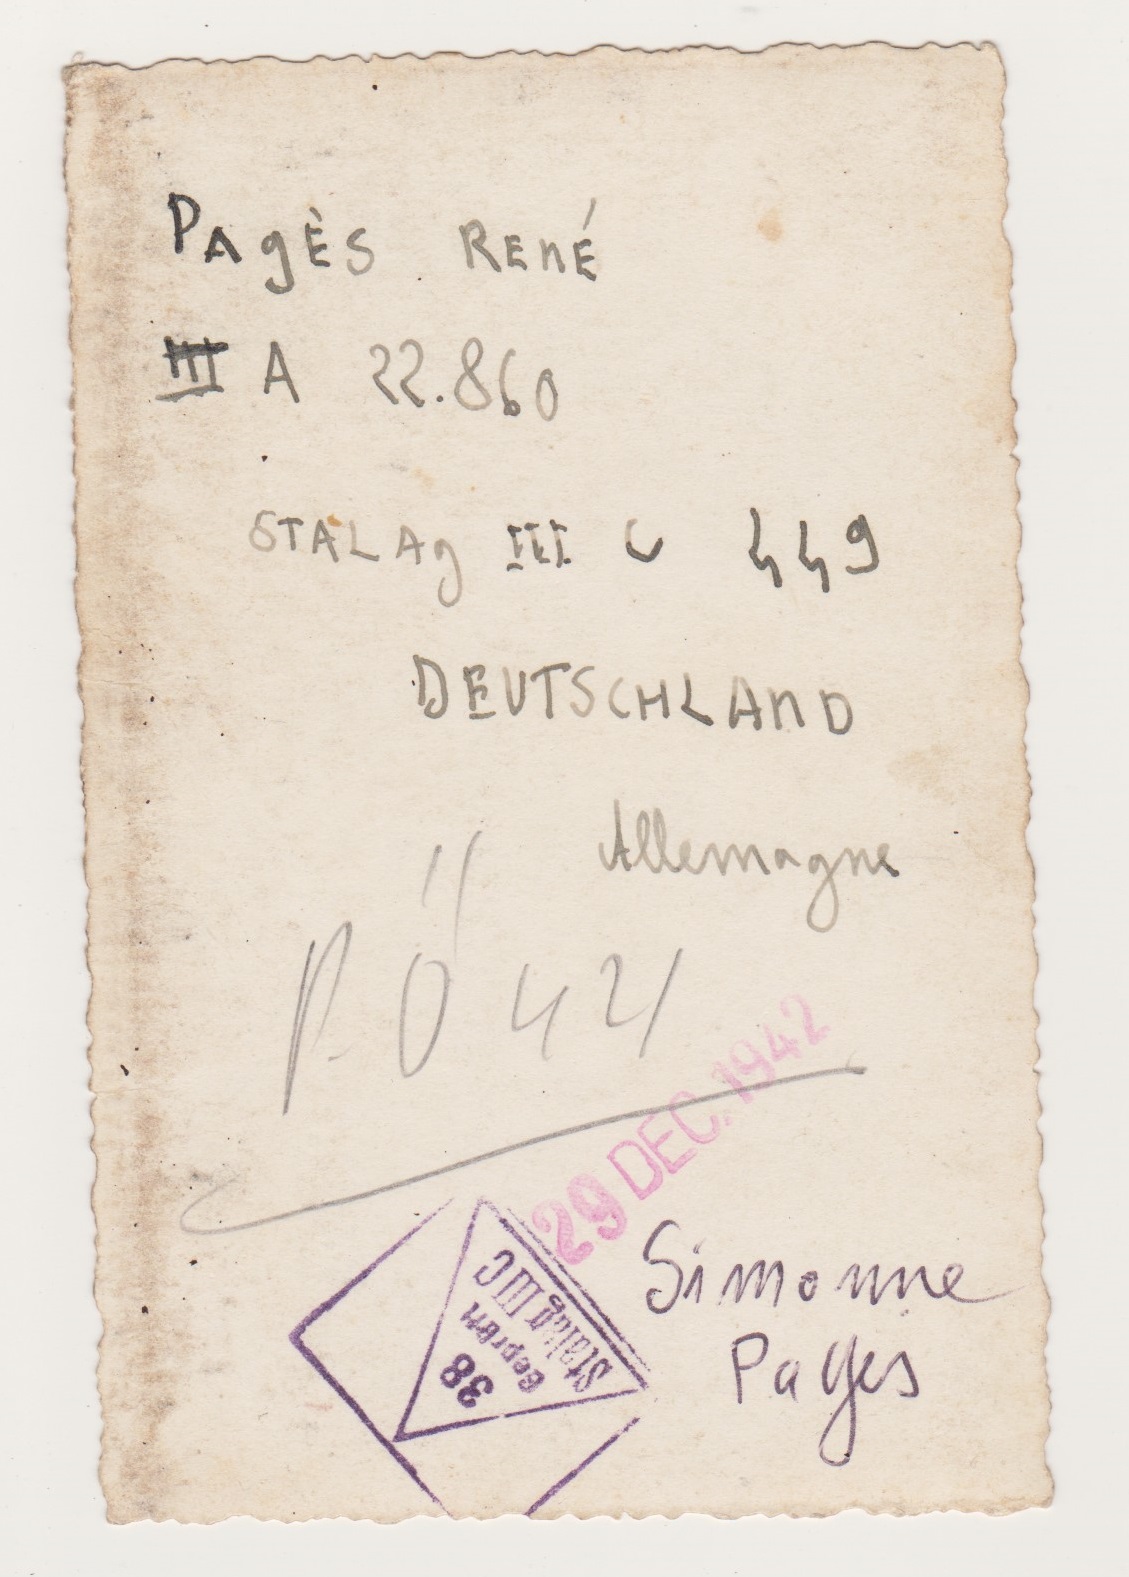 Pagès René
III A 22.860
STALAg III C 449
DEUTSCHLAND
Allemagne
29 DEC. 1942
Stalag III C
Geprüft
38
Simonne
Pages